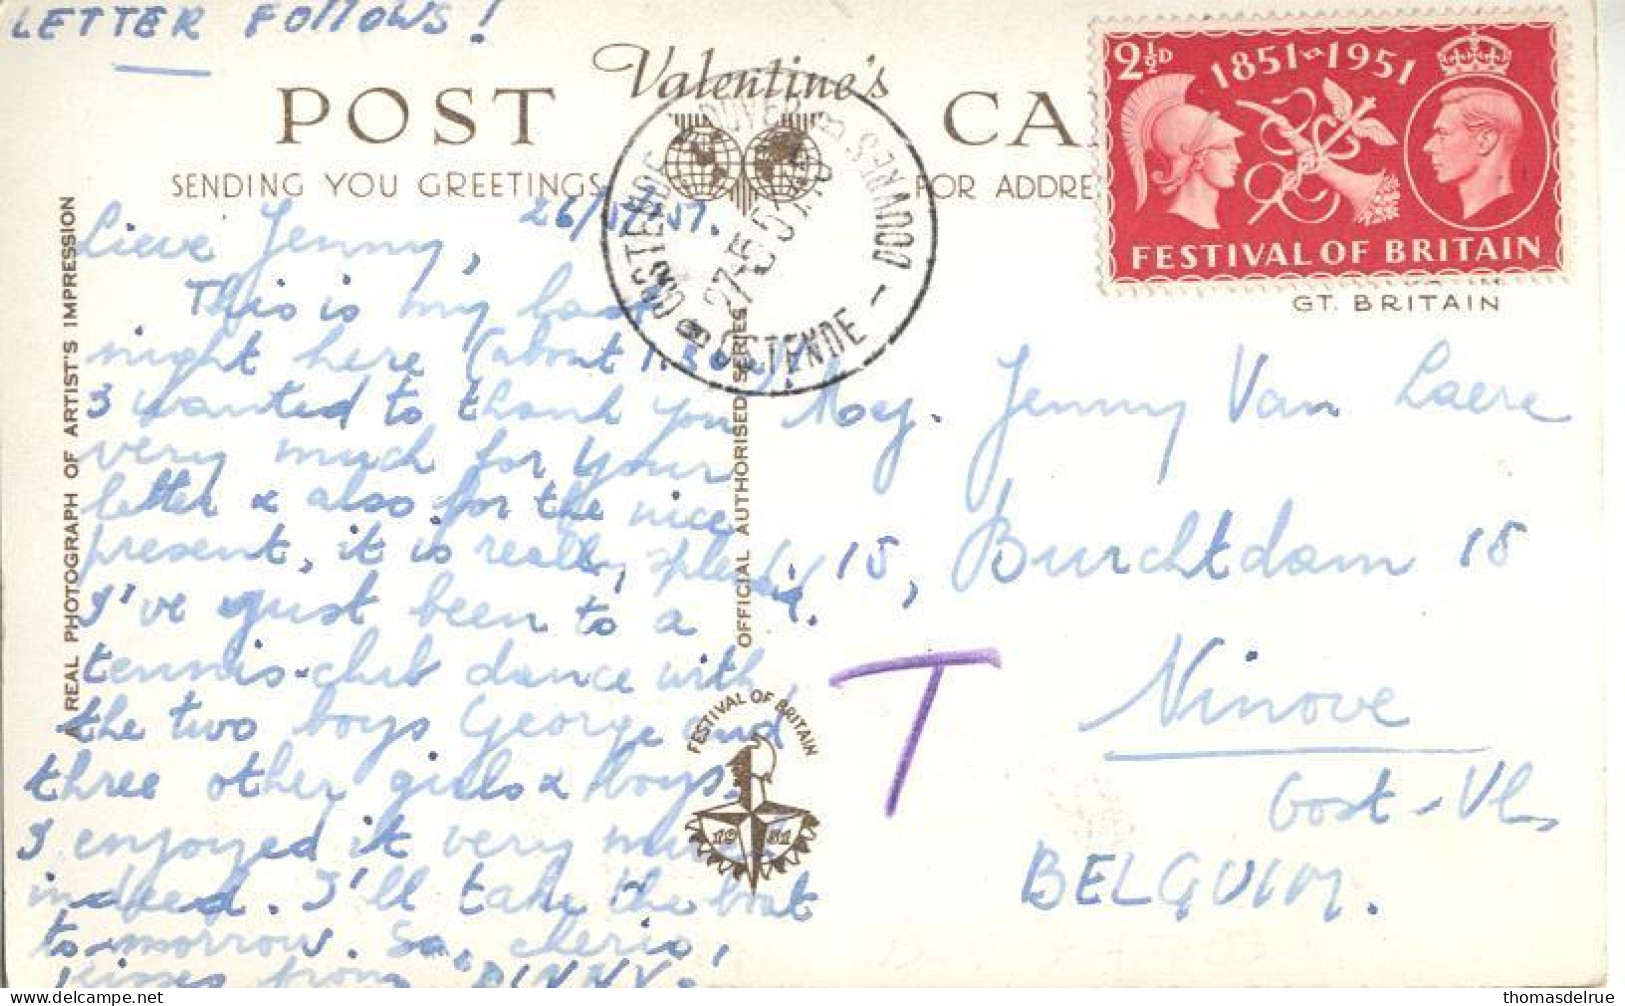 LETTER FOLLOWS!
Valentine's
POST CA
SENDING YOU GREETINGS FOR ADDRE
2½D
1851-1951
FESTIVAL OF BRITAIN
GT. BRITAIN
A REAL PHOTOGRAPH OF ARTIST'S IMPRESSION
OFFICIAL AUTHORISED SERIES
OOSTENDE
OSTENDE
DOUVRES
27-5
26/5/51.
Lieve Jenny,
This is my last
night here (about 1.30
I wanted to thank you
very much for your
letter & also for the nice
present, it is really splendid.
I've just been to a
tennis-club dance with
the two boys George and
three other girls & boys.
I enjoyed it very much
indeed. I'll take the boat
to-morrow. So, cherio,
kisses from
FESTIVAL OF BRITAIN
19 51
Mej. Jenny Van Laere
15, Burchtdam 15
T
Ninove
Oost-Vl
BELGUIM.
thomasdelrue